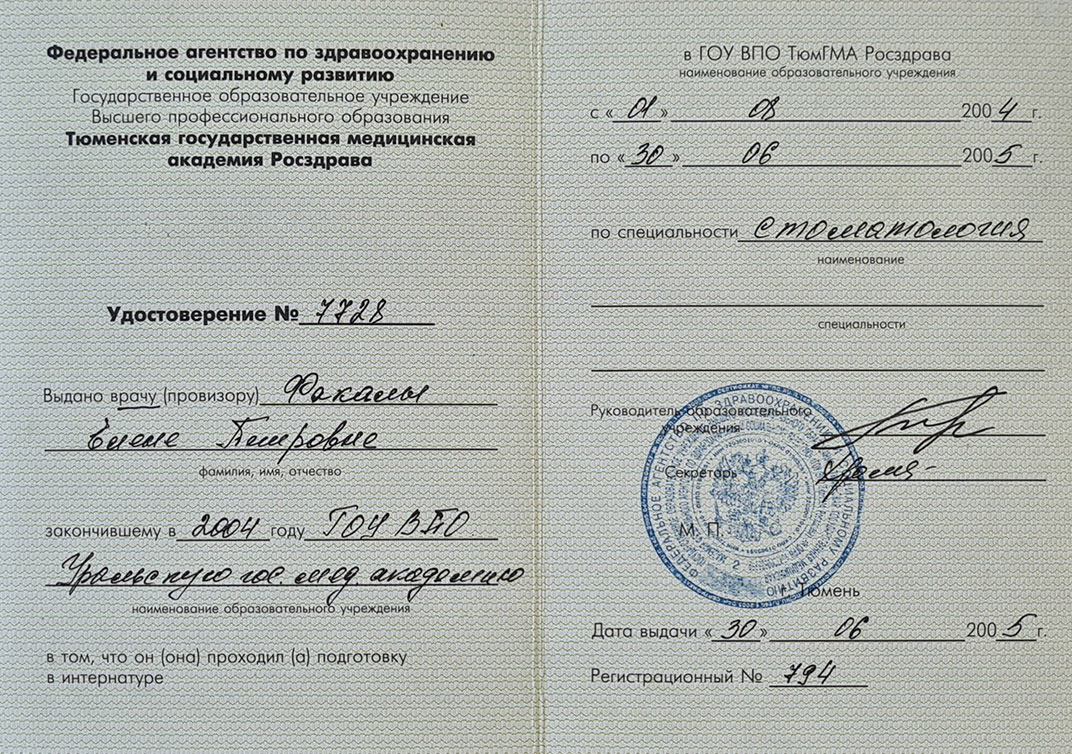 Федеральное агентство по здравоохранению
и социальному развитию
Государственное образовательное учреждение
Высшего профессионального образования
Тюменская государственная медицинская
академия Росздрава
Удостоверение № 7728
Выдано врачу (провизору) Факалы
Елене Петровне
фамилия, имя, отчество
закончившему в 2004 году ГОУ ВПО
Уральскую гос. мед. академию
наименование образовательного учреждения
в том, что он (она) проходил (а) подготовку
в интернатуре
в ГОУ ВПО ТюмГМА Росздрава
наименование образовательного учреждения
с «01» 08 2004 г.
по «30» 06 2005 г.
по специальности Стоматология
наименование
специальности
Руководитель образовательного
учреждения
Секретарь
М. П.
ФЕДЕРАЛЬНОЕ АГЕНТСТВО ПО ЗДРАВООХРАНЕНИЮ И СОЦИАЛЬНОМУ РАЗВИТИЮ
2
Тюмень
Дата выдачи «30» 06 2005 г.
Регистрационный № 794